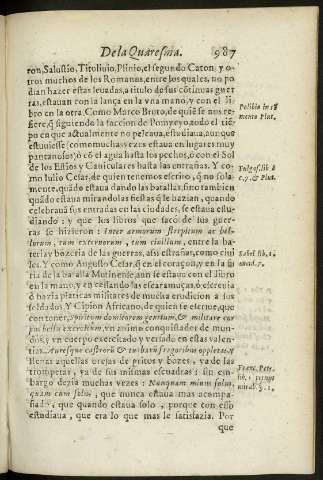 De la Quaresma. 987
ron, Salustio, Titoliuio, Plinio, el segundo Caton, y o-
tros muchos de los Romanos, entre los quales, no po
dian hazer estas leuadas, a titulo de sus cõtinuas guer
ras, estauan con la lança en la vna mano, y con el li-
bro en la otra. Como Marco Bruto, de quiẽ se nos re-
fiere, q̃ siguiendo la faccion de Ponpeyo todo el tiẽ
po en que actualmente no peleaua, estudiaua, aunque
estuuiesse (como muchas vezes estauan en lugares muy
pantanosos) cõ el agua hasta los pechos, o con el Sol
de los Estios y Caniculares hasta las entrañas. Y co-
mo Iulio Cesar, de quien tenemos escrito, q̃ no sola-
mente, quãdo estaua dando las batallas, sino tambien
quãdo estaua mirando las fiestas q̃ le hazian, quando
celebraua sus entradas en las ciudades, se estaua estu-
diando: y que los libros que sacò de sus guer-
ras se hizieron: Inter armorum strepitum ac bel-
lorum, tum externorum, tum ciuilium, entre la ba-
teria y bozeria de las guerras, assi estrañas, como ciui
les. Y como Augusto Cesar, q̃ en el coraçon, y en la fu
ria de la batalla Mutinense, aun se estaua con el libro
en la mano, y en cessando las escaramuças, o escriuia
ò hazia platicas militares de mucha erudicion à sus
soldados. Y Cipion Africano, de quien se cree, que
con tener, spiritum domitorem gentium, & militare cor
pus bellis exercitum, vn animo conquistador de mun-
dos, y un cuerpo exercitado y versado en estas valen-
tias. Auresque castrorũ & turbarũ fragoribus oppletas, y
llenas aquellas orejas de gritos y bozes, ya de las
trompetas, ya de sus mismas escuadras: sin em-
bargo dezia muchas vezes: Nunquam minus solus,
quam cum solus, que nunca estaua mas acompa-
ñado, que quando estaua solo, porque con esso
estudiaua, que era lo que mas le satisfazia. Por
que
Polibio in
mento Plut.
Fulgos. lib. 8
c. 7. & Plut.
Sabel. lib. 2.
Franc. Petr.
lib. 1. rerum